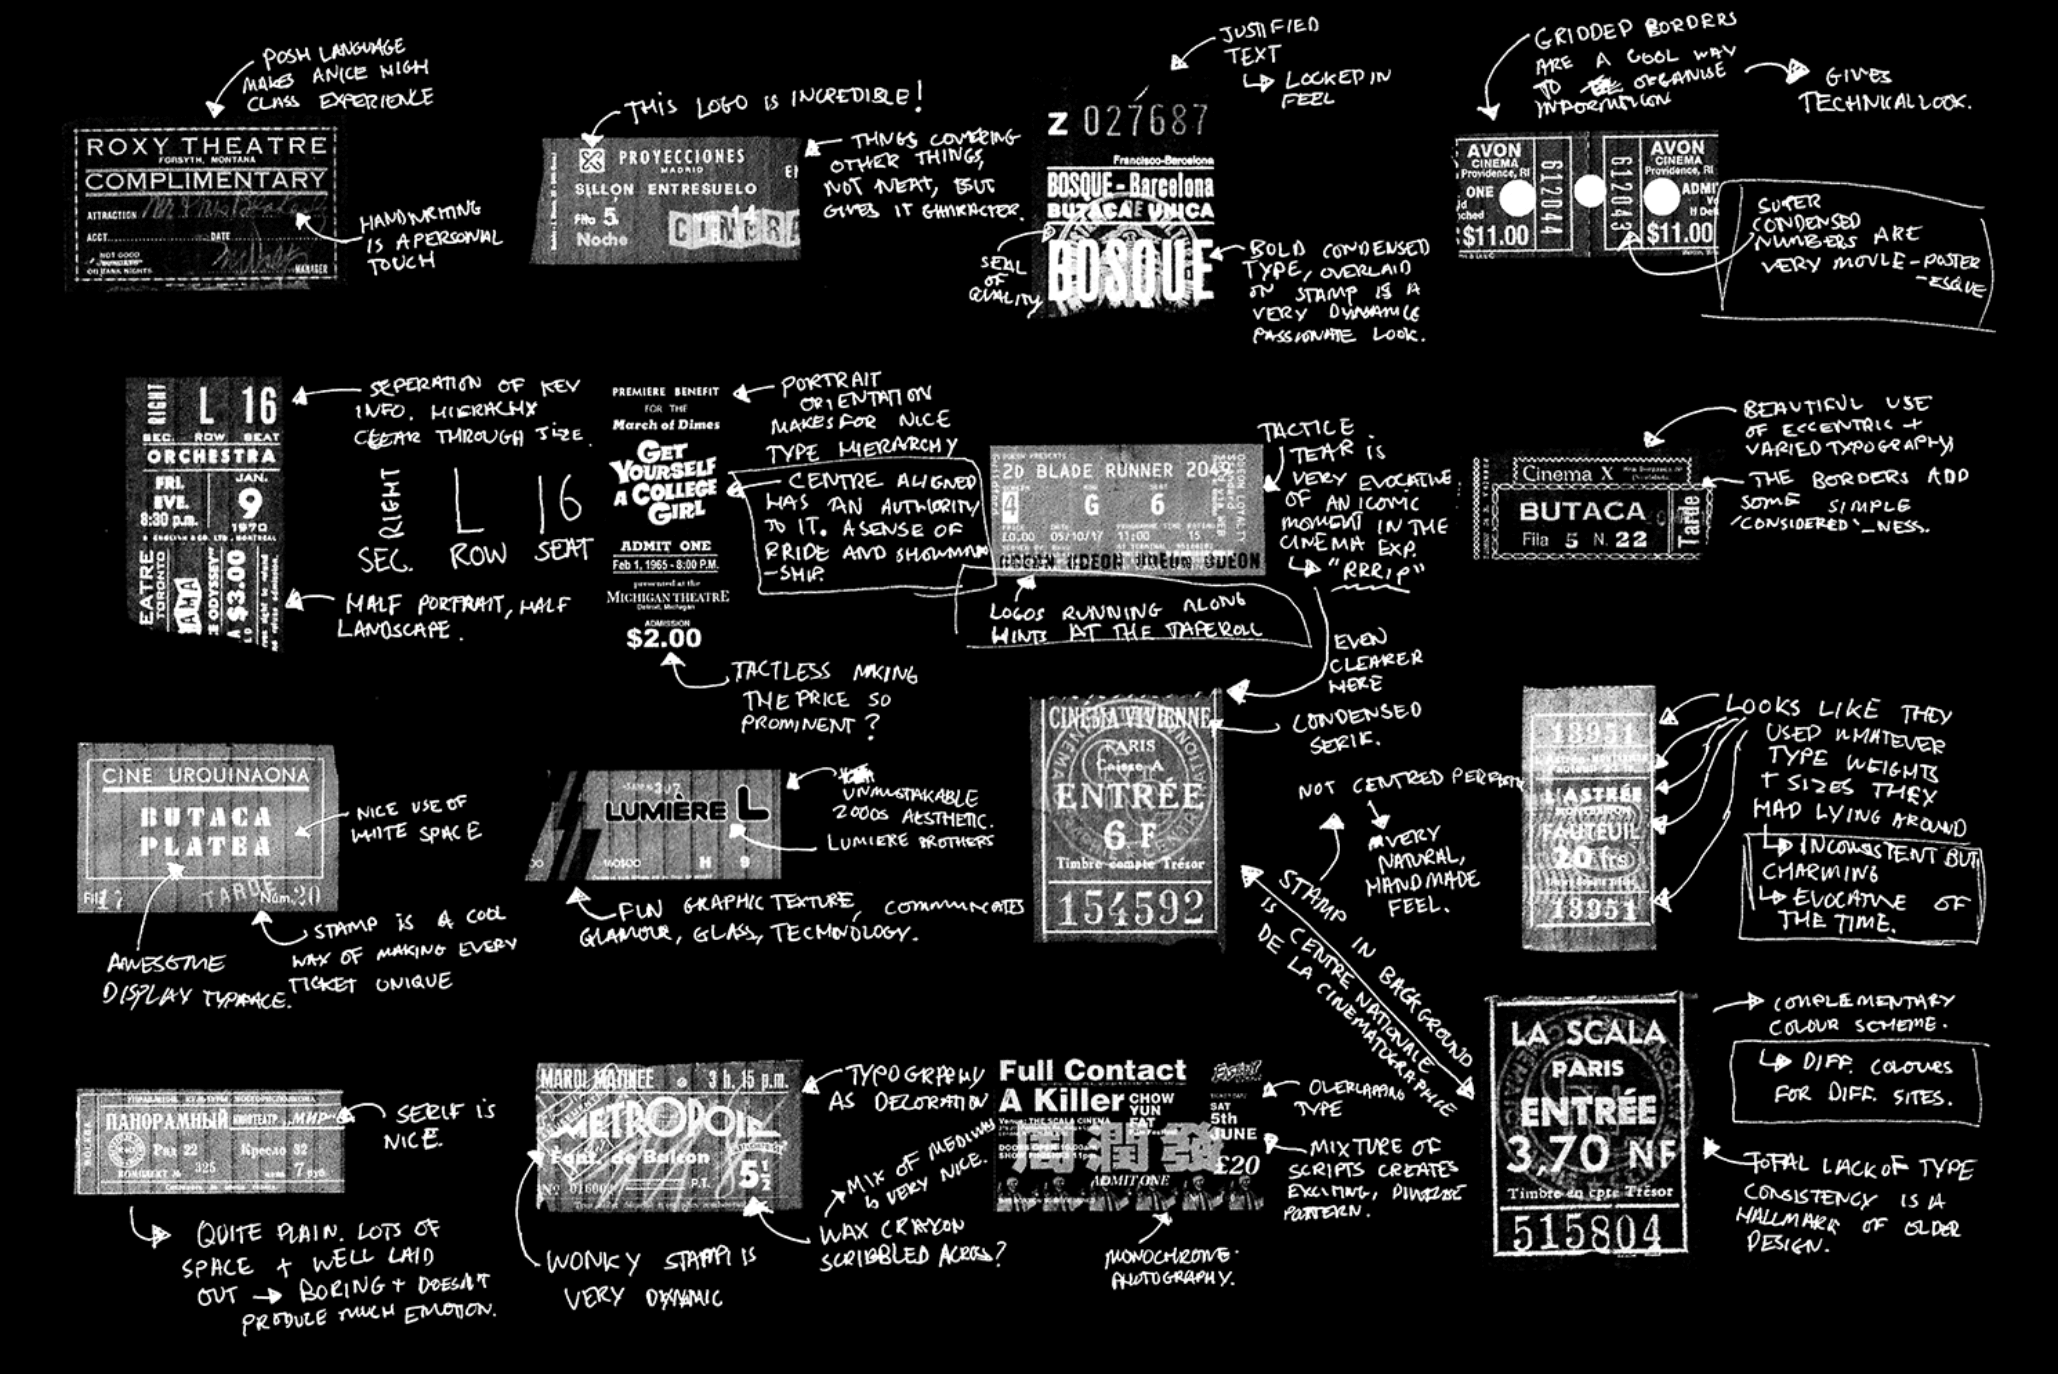 POSH LANGUAGE
MAKES A NICE HIGH
CLASS EXPERIENCE
ROXY THEATRE
FORSYTH, MONTANA
COMPLIMENTARY
ATTRACTION
ACCT. DATE
NOT GOOD
OR BANK NIGHTS
MANAGER
HANDWRITING
IS A PERSONAL
TOUCH
THIS LOGO IS INCREDIBLE!
PROYECCIONES
MADRID
SILLÓN ENTRESUELO
Fila 5
Noche
14
CINERA
THINGS COVERING
OTHER THINGS,
NOT NEAT, BUT
GIVES IT CHARACTER.
JUSTIFIED
TEXT
↳ LOCKED IN
FEEL
Z 027687
Francisco-Barcelona
BOSQUE - Barcelona
BUTACA UNICA
BOSQUE
SEAL
OF
QUALITY
BOLD CONDENSED
TYPE, OVERLAID
ON STAMP IS A
VERY DYNAMIC
PASSIONATE LOOK.
GRIDDED BORDERS
ARE A COOL WAY
TO ORGANISE
INFORMATION
GIVES
TECHNICAL LOOK.
AVON
CINEMA
Providence, RI
ONE
$11.00
612044
612043
AVON
CINEMA
Providence, RI
ADMI
$11.00
SUPER
CONDENSED
NUMBERS ARE
VERY MOVIE-POSTER
-ESQUE
RIGHT L 16
SEC. ROW SEAT
ORCHESTRA
FRI.
EVE.
8:30 p.m.
JAN.
9
1970
EATRE
TORONTO
AMA
E ODYSSEY"
$3.00
SEPERATION OF KEY
INFO. HIERACHY
CLEAR THROUGH SIZE.
RIGHT L 16
SEC. ROW SEAT
HALF PORTRAIT, HALF
LANDSCAPE.
PREMIERE BENEFIT
FOR THE
March of Dimes
GET
YOURSELF
A COLLEGE
GIRL
ADMIT ONE
Feb 1, 1965 - 8:00 P.M.
presented at the
MICHIGAN THEATRE
Detroit, Michigan
ADMISSION
$2.00
PORTRAIT
ORIENTATION
MAKES FOR NICE
TYPE HIERARCHY
CENTRE ALIGNED
HAS AN AUTHORITY
TO IT. A SENSE OF
PRIDE AND SHOWMAN
-SHIP.
TACTLESS MAKING
THE PRICE SO
PROMINENT?
2D BLADE RUNNER 2049
4 G 6
£0.00 05/10/17 11:00 15
ODEON ODEON ODEON ODEON
TACTICE
TEAR IS
VERY EVOCATIVE
OF AN ICONIC
MOMENT IN THE
CINEMA EXP.
↳ "RRRIP"
LOGOS RUNNING ALONG
HINTS AT THE TAPEROLL
EVEN
CLEARER
HERE
Cinema X
BUTACA
Fila 5 N. 22
Tarde
BEAUTIFUL USE
OF ECCENTRIC +
VARIED TYPOGRAPHY
THE BORDERS ADD
SOME SIMPLE
'CONSIDERED'-NESS.
CINE URQUINAONA
BUTACA
PLATEA
Fila 17 TARDE Núm. 20
NICE USE OF
WHITE SPACE
AWESOME
DISPLAY TYPFACE.
STAMP IS A COOL
WAY OF MAKING EVERY
TICKET UNIQUE
LUMIERE L
H 9
UNMISTAKABLE
2000s AESTHETIC.
LUMIERE BROTHERS
FUN GRAPHIC TEXTURE, COMMUNICATES
GLAMOUR, GLASS, TECHNOLOGY.
CINÉMA VIVIENNE
PARIS
Caisse A
ENTRÉE
6 F
Timbre compte Trésor
154592
CONDENSED
SERIF.
NOT CENTRED PERFECTLY
VERY
NATURAL,
HANDMADE
FEEL.
STAMP IN BACKGROUND
IS CENTRE NATIONALE
DE LA CINEMATOGRAPHIE
13951
L'ASTRÉE
FAUTEUIL
20 frs
13951
LOOKS LIKE THEY
USED WHATEVER
TYPE WEIGHTS
+ SIZES THEY
HAD LYING AROUND
↳ INCONSISTENT BUT
CHARMING
↳ EVOCATIVE OF
THE TIME.
ПАНОРАМНЫЙ КИНОТЕАТР „МИР"
МОСКВА
Ряд 22 Кресло 32
325 цена 7 руб
SERIF IS
NICE.
QUITE PLAIN. LOTS OF
SPACE + WELL LAID
OUT → BORING + DOESN'T
PRODUCE MUCH EMOTION.
MARDI MATINEE 3 h. 15 p.m.
METROPOLE
Faut. de Balcon
No 016004 P.T. 5½
TYPOGRAPHY
AS DECORATION
MIX OF MEDIUMS
IS VERY NICE.
WAX CRAYON
SCRIBBLED ACROSS?
WONKY STAMP IS
VERY DYNAMIC
Full Contact
A Killer
CHOW
YUN
FAT
Venue: THE SCALA CINEMA
SAT
5th
JUNE
£20
周潤發
ADMIT ONE
OVERLAPPING
TYPE
MIXTURE OF
SCRIPTS CREATES
EXCITING, DIVERSE
PATTERN.
MONOCHROME
PHOTOGRAPHY.
LA SCALA
PARIS
ENTRÉE
3,70 NF
Timbre en cpte Trésor
515804
COMPLEMENTARY
COLOUR SCHEME.
↳ DIFF. COLOURS
FOR DIFF. SITES.
TOTAL LACK OF TYPE
CONSISTENCY IS A
HALLMARK OF OLDER
DESIGN.